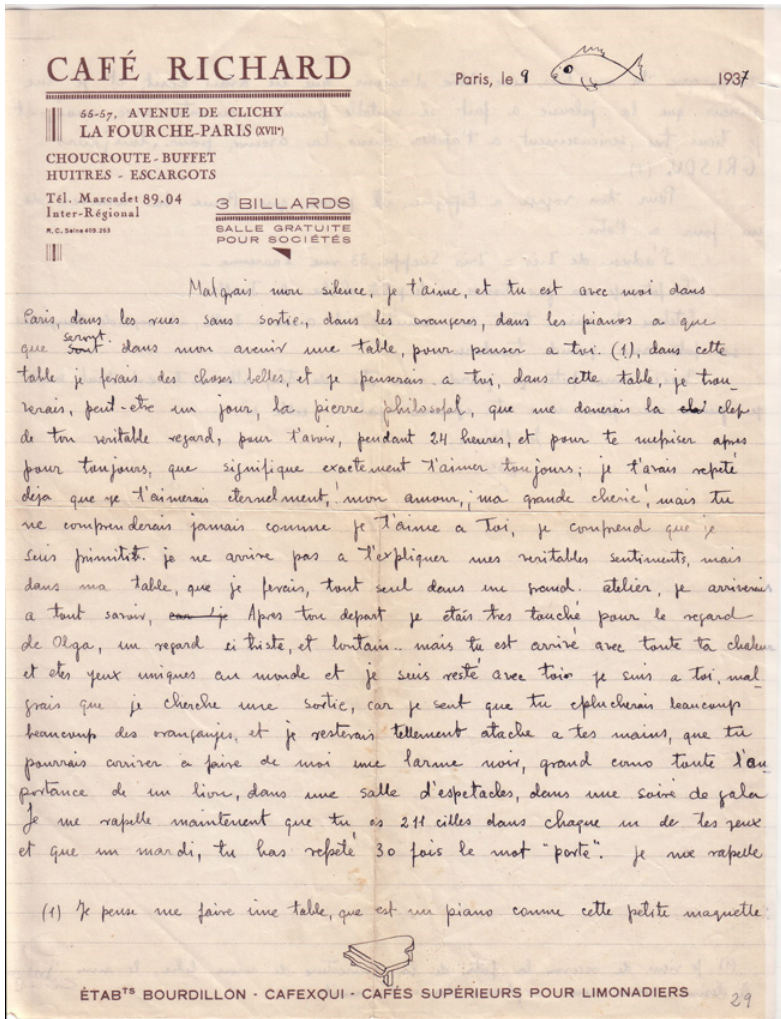 CAFÉ RICHARD
55-57, AVENUE DE CLICHY
LA FOURCHE-PARIS (XVIIe)
CHOUCROUTE - BUFFET
HUITRES - ESCARGOTS
Tél. Marcadet 89.04
Inter-Régional
R. C. Seine 409.253
3 BILLARDS
SALLE GRATUITE
POUR SOCIÉTÉS
Paris, le 9 1937
Malgrais mon silence, je t'aime, et tu est avec moi dans
Paris, dans les rues sans sortie, dans les orangeres, dans les pianos a que
que seront dans mon avenir une table, pour penser a toi. (1), dans cette
table je ferais des choses belles, et je penserais a toi, dans cette table, je trou-
verais, peut-etre un jour, la pierre philosofal, que me donerais la clef
de ton veritable regard, pour t'avoir, pendant 24 heures, et pour te mepriser apres
pour toujours, que signifique exactement t'aimer toujours; je t'avais repeté
deja que je t'aimerais eternelment, ¡mon amour, ¡ma grande cherie! mais tu
ne comprenderais jamais comme je t'aime a toi, je comprend que je
suis primitif. je ne arrive pas a t'expliquer mes veritables sentiments, mais
dans ma table, que je ferais, tout seul dans un grand. atelier, je arriverais
a tout savoir, Apres ton depart je etais tres touché pour le regard
de Olga, un regard si triste, et lontain.. mais tu est arrivé avec toute ta chaleur
et etes yeux uniques au monde et je suis resté avec toi je suis a toi, mal-
grais que je cherche une sortie, car je sent que tu eplucherais beaucoup
beaucoup des oranganjes, et je resterais tellement atache a tes mains, que tu
pourrais arriver a faire de moi une larme noir, grand como toute l'an-
portance de un lion, dans une salle d'espetacles, dans une soiré de gala
Je me rapelle maintenent que tu as 211 cilles dans chaque un de tes yeux
et que un mardi, tu has repeté 30 fois le mot "porte". je me rapelle
(1) Je pense me faire une table, que est un piano comme cette petite maquette
ÉTABTS BOURDILLON - CAFEXQUI - CAFÉS SUPÉRIEURS POUR LIMONADIERS
29